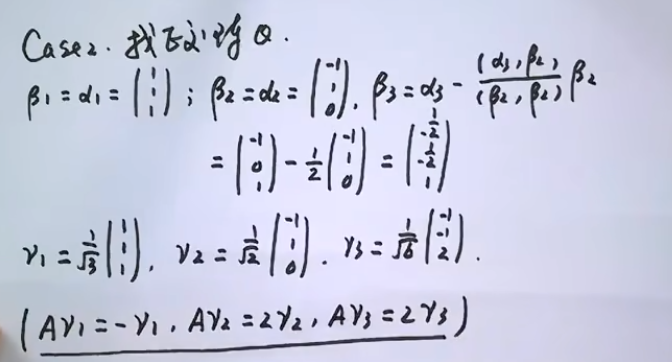 Case2. 找正交的Q.
β₁=α₁=(1 1 1); β₂=α₂=(-1 1 0). β₃=α₃-(α₃,β₂)/(β₂,β₂)β₂
=(-1 0 1)-1/2(-1 1 0)=(-1/2 -1/2 1)
γ₁=1/√3(1 1 1). γ₂=1/√2(-1 1 0). γ₃=1/√6(-1 -1 2).
(Aγ₁=-γ₁, Aγ₂=2γ₂, Aγ₃=2γ₃)